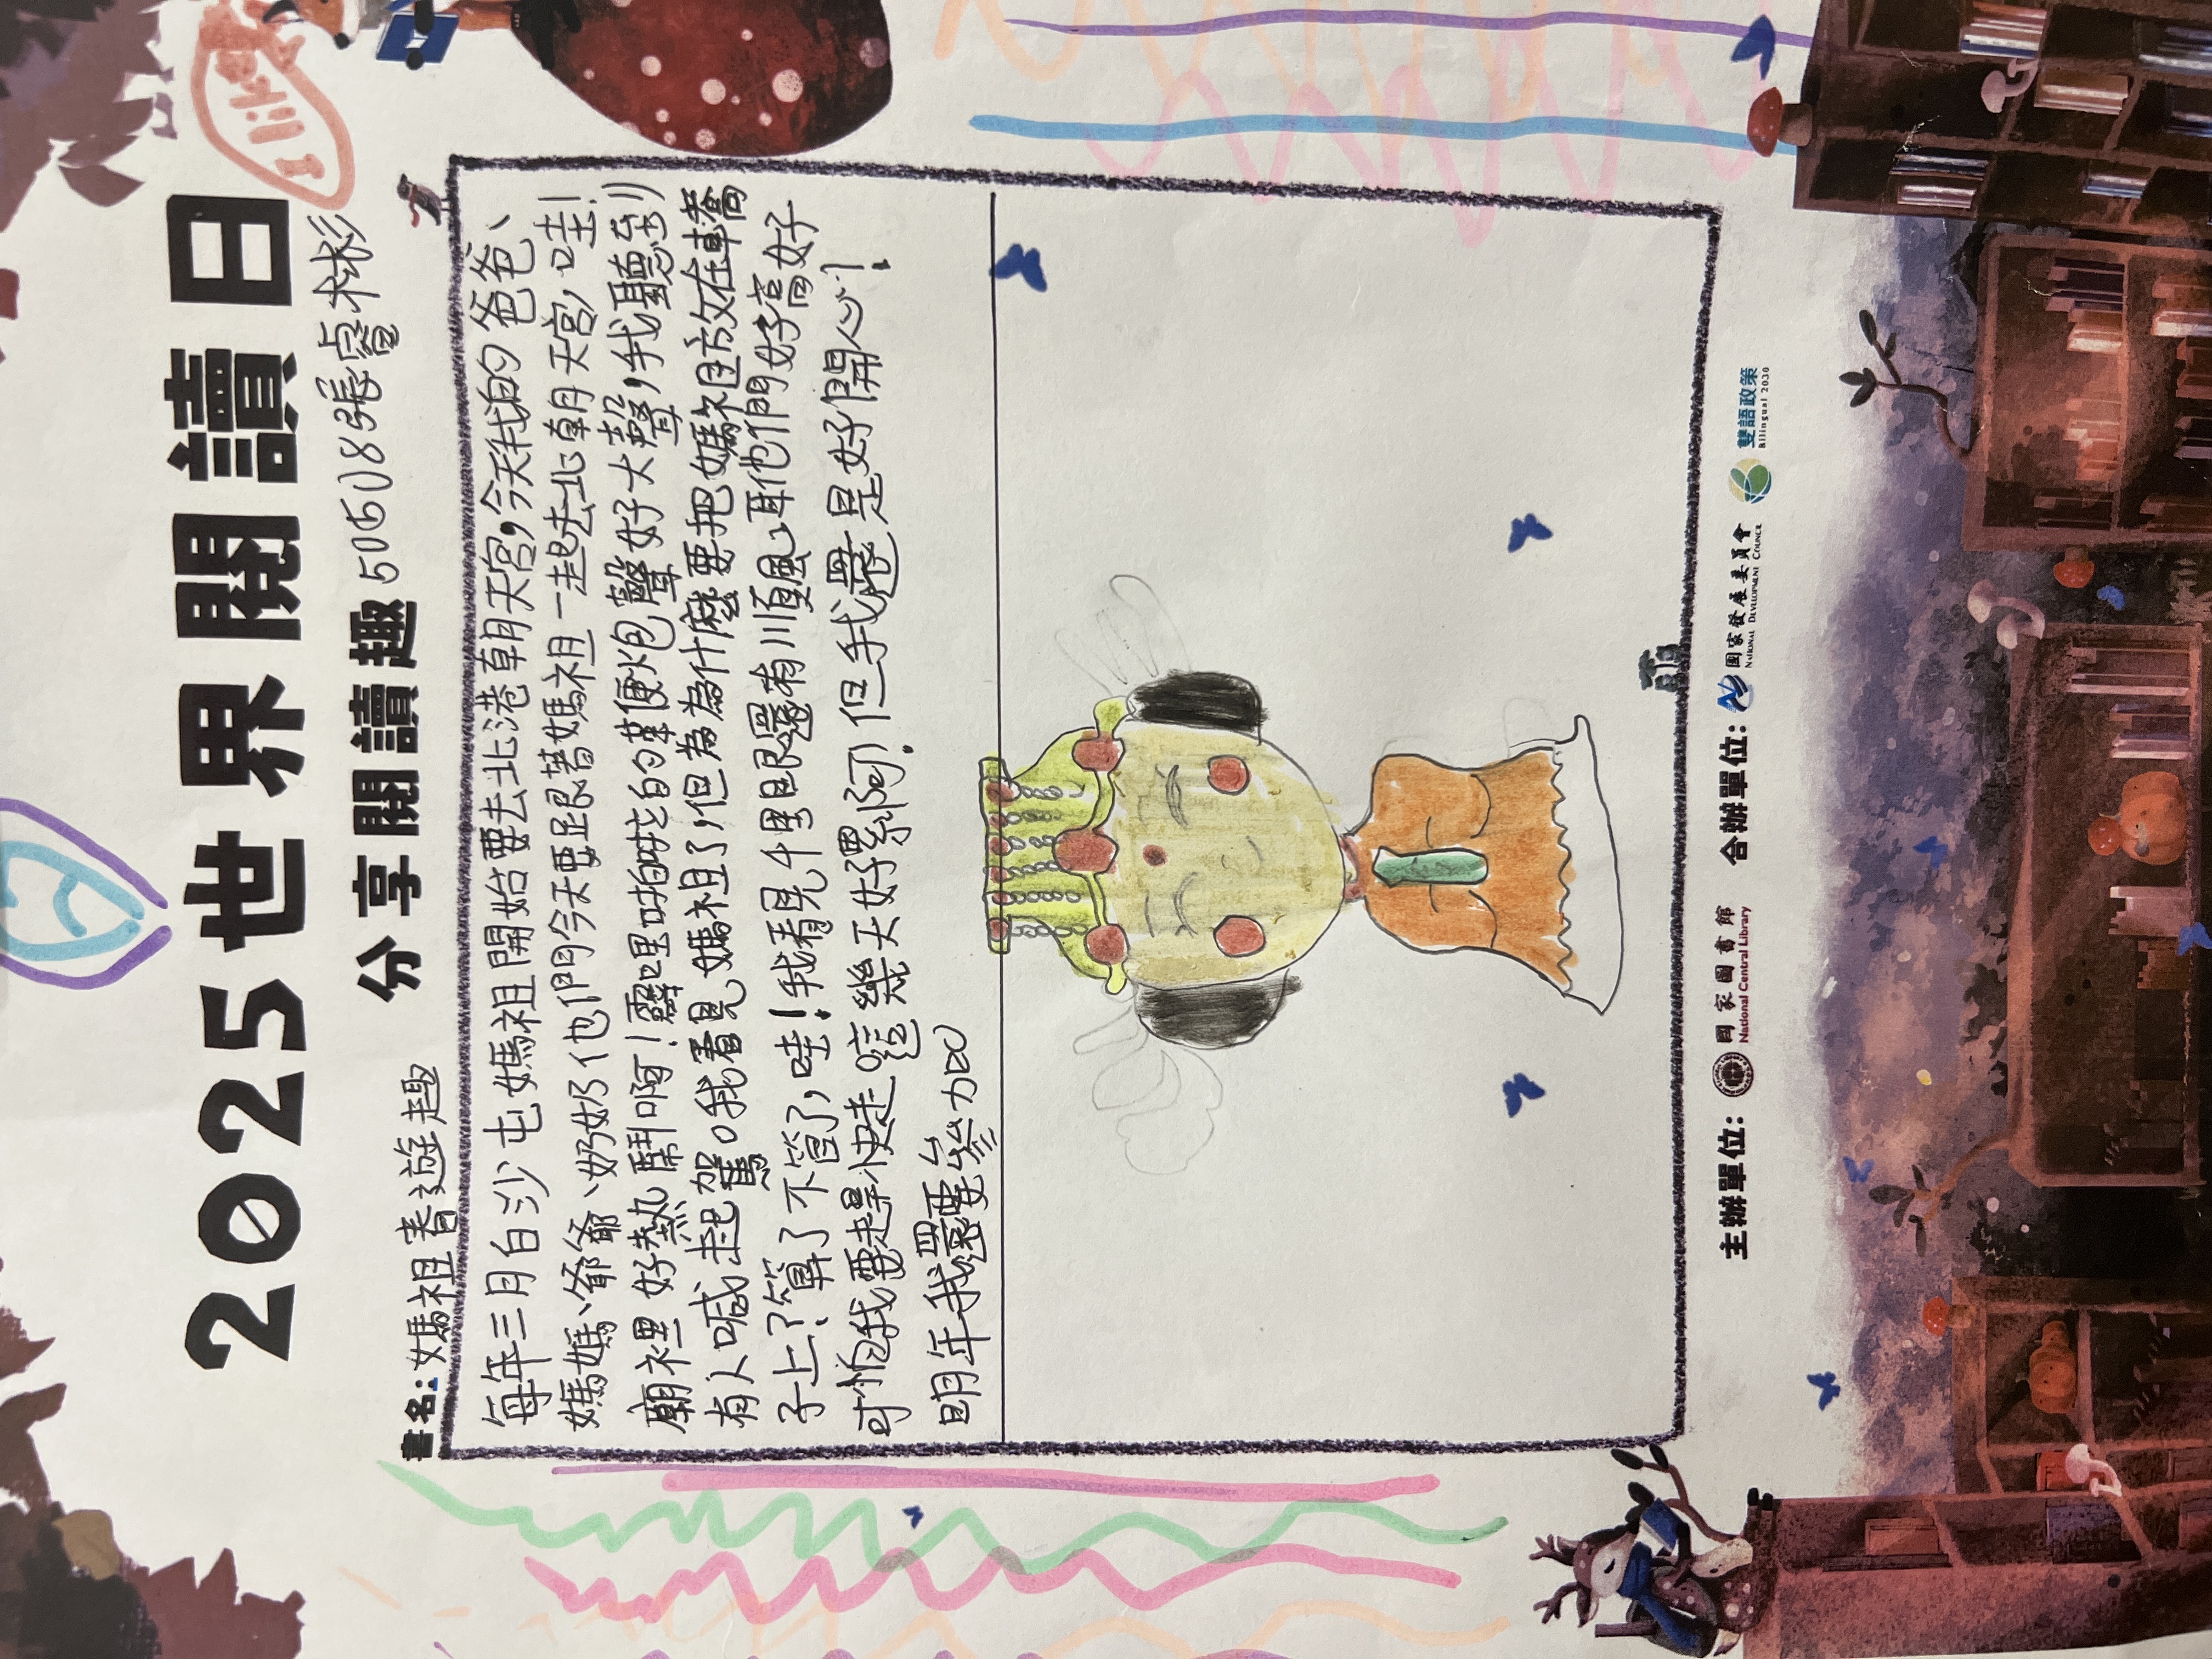 2025世界閱讀日
I like
分享閱讀趣 50508張睿彬
書名:媽祖春遊趣
每年三月白沙屯媽祖開始要去北港朝天宮,今天我的爸爸、
媽媽、爺爺、奶奶他們今天要跟著媽祖一起去北朝天宮,哇!
廟裡好熱鬧啊!霹哩啪啦的鞭炮聲好大聲,我聽到
有人喊起駕。我看見媽祖了,但為什麼要把媽祖放在車轎
子上?算了不管了,哇!我看見千里眼還有順風耳他們好高好
可怕我要趕快走。這幾天好累啊!但我還是好開心!
明年我還要參加
主辦單位: 國家圖書館 National Central Library 合辦單位: 國家發展委員會 National Development Council 雙語政策 Bilingual 2030